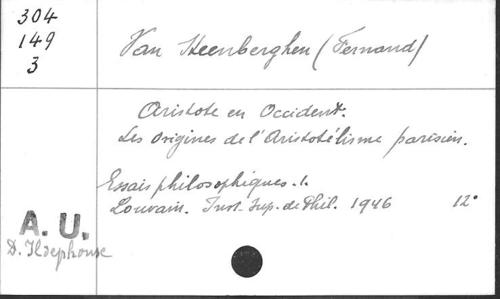 304
149
3
Van Steenberghen (Fernand)
Aristote en Occident.
Les Origines de l'Aristotélisme parisien.
Essais philosophiques. 1.
Louvain. Inst. Sup. de Phil. 1946 12°
A. U.
D. Ildephonse